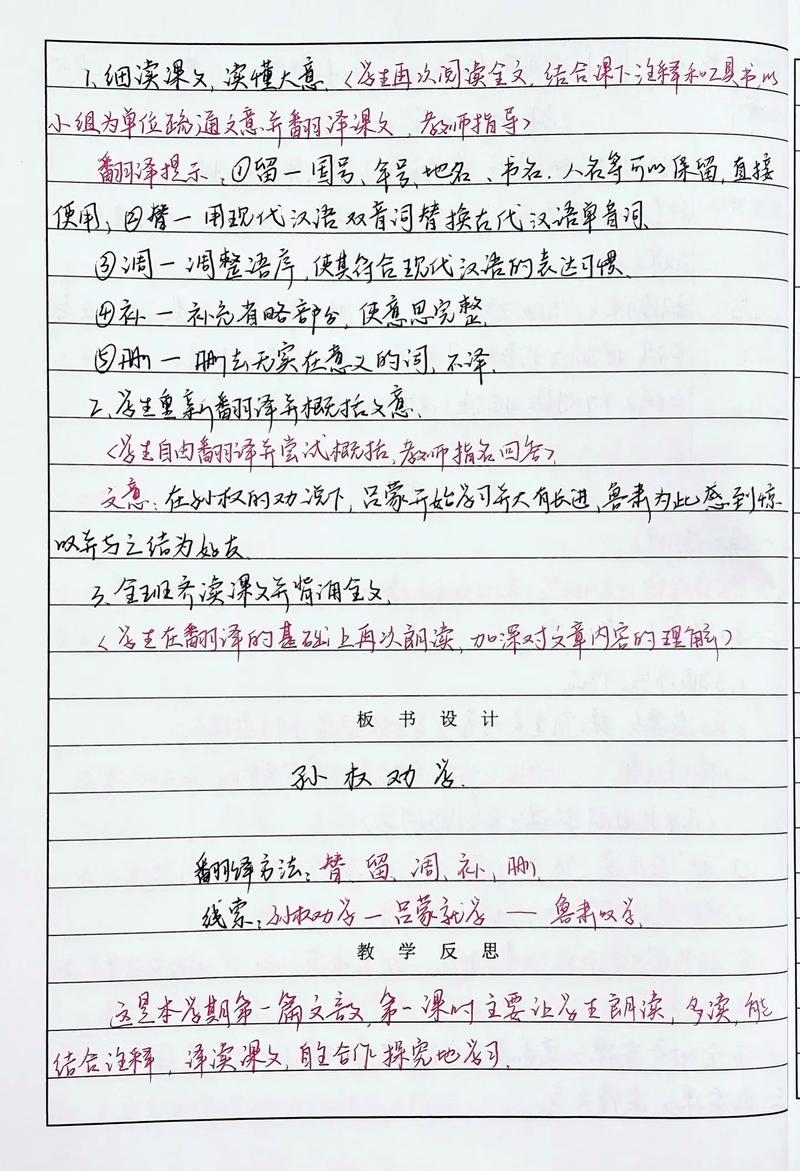 1.细读课文,读懂大意.<学生再次阅读全文,结合课下注释和工具书,以
小组为单位疏通文意并翻译课文,教师指导>
翻译提示:①留—国号、年号、地名、书名、人名等可以保留,直接
使用;②替—用现代汉语双音词替换古代汉语单音词.
③调—调整语序,使其符合现代汉语的表达习惯.
④补—补充省略部分,使意思完整.
⑤删—删去无实在意义的词,不译.
2.学生重新翻译并概括文意.
<学生自由翻译并尝试概括,教师指名回答>.
文意:在孙权的劝说下,吕蒙开始学习并大有长进,鲁肃为此感到惊
叹并与之结为好友.
3.全班齐读课文并背诵全文.
<学生在翻译的基础上再次朗读,加深对文章内容的理解>
板书设计
孙权劝学.
翻译方法:替、留、调、补、删.
线索:孙权劝学—吕蒙就学——鲁肃叹学.
教学反思
这是本学期第一篇文言文,第一课时主要让学生朗读,多读,能
结合注释,译读课文,自主合作探究地学习.